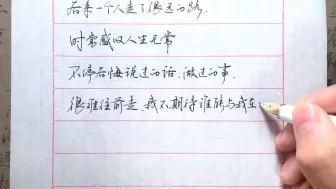 后来一个人走了很远的路.
时常感叹人生无常
不停后悔说过的话,做过的事.
很难往前走,我不期待谁能与我在